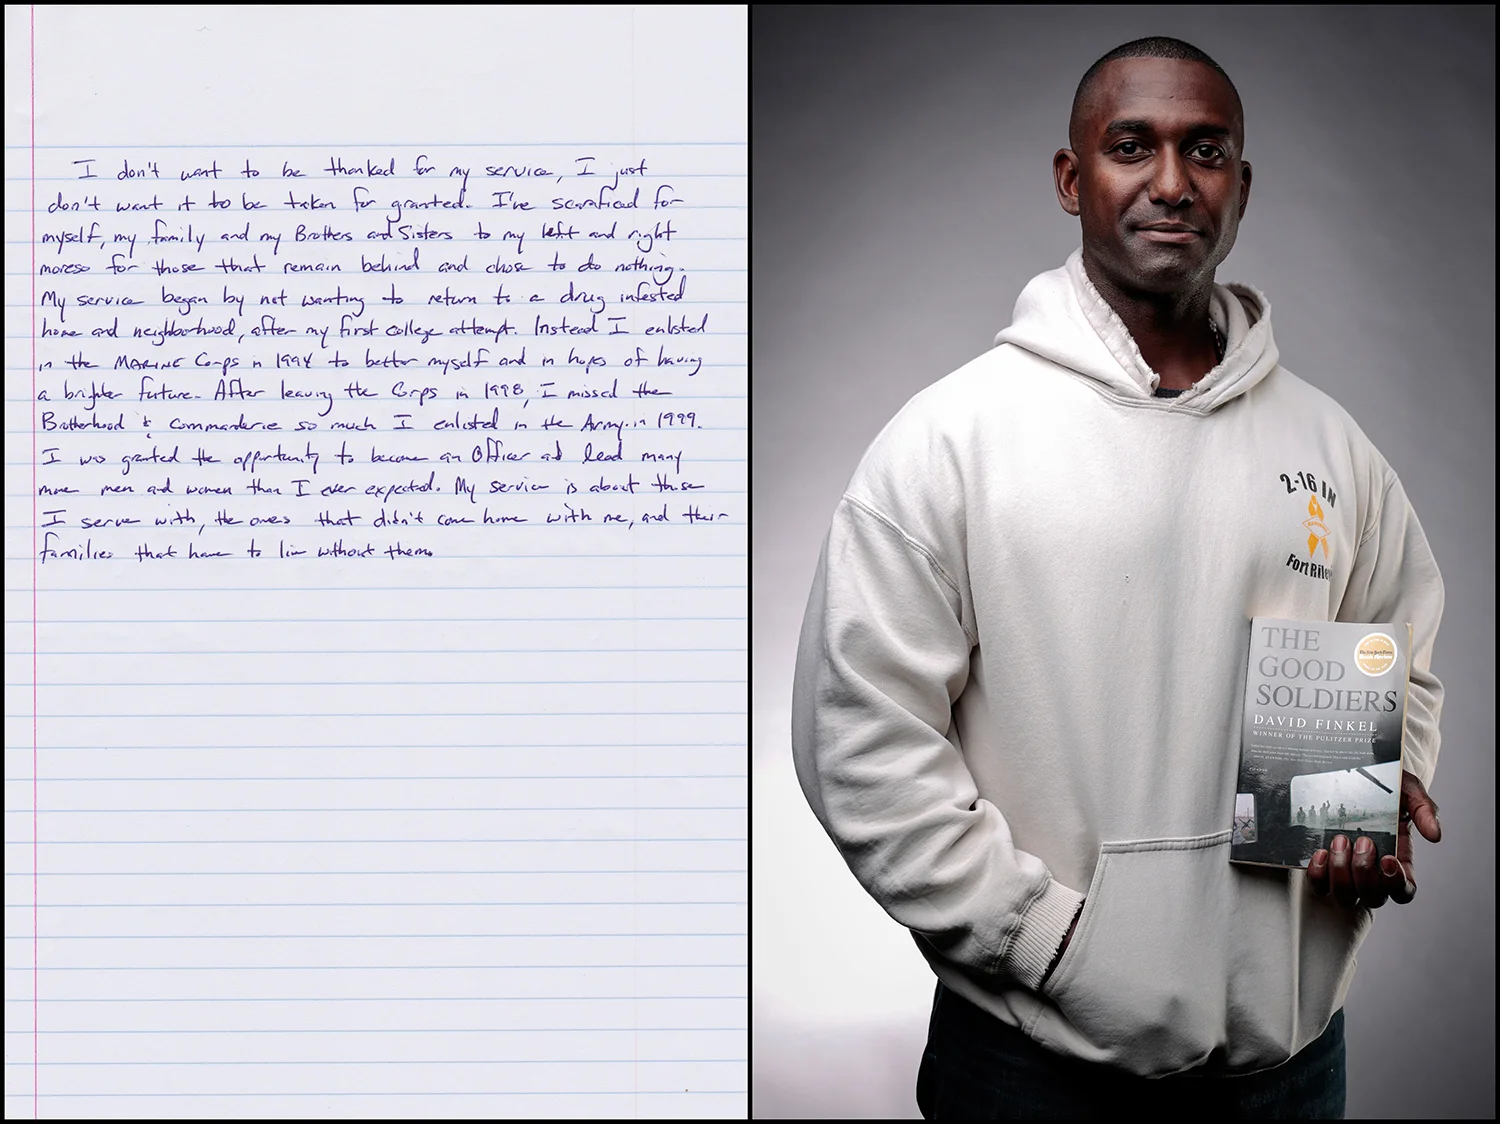 I don't want to be thanked for my service, I just
don't want it to be taken for granted. I've scaraficed for
myself, my family and my Brothers and Sisters to my left and right
moreso for those that remain behind and chose to do nothing.
My service began by not wanting to return to a drug infested
home and neighborhood, after my first college attempt. Instead I enlisted
in the MARINE Corps in 1994 to better myself and in hopes of having
a brighter future. After leaving the Corps in 1998, I missed the
Brotherhood & Commarderie so much I enlisted in the Army in 1999.
I was granted the opportunity to become an Officer and lead many
more men and women than I ever expected. My service is about those
I serve with, the ones that didn't come home with me, and their
families that have to live without them.
2-16 IN
Fort Riley
THE
GOOD
SOLDIERS
DAVID FINKEL
WINNER OF THE PULITZER PRIZE